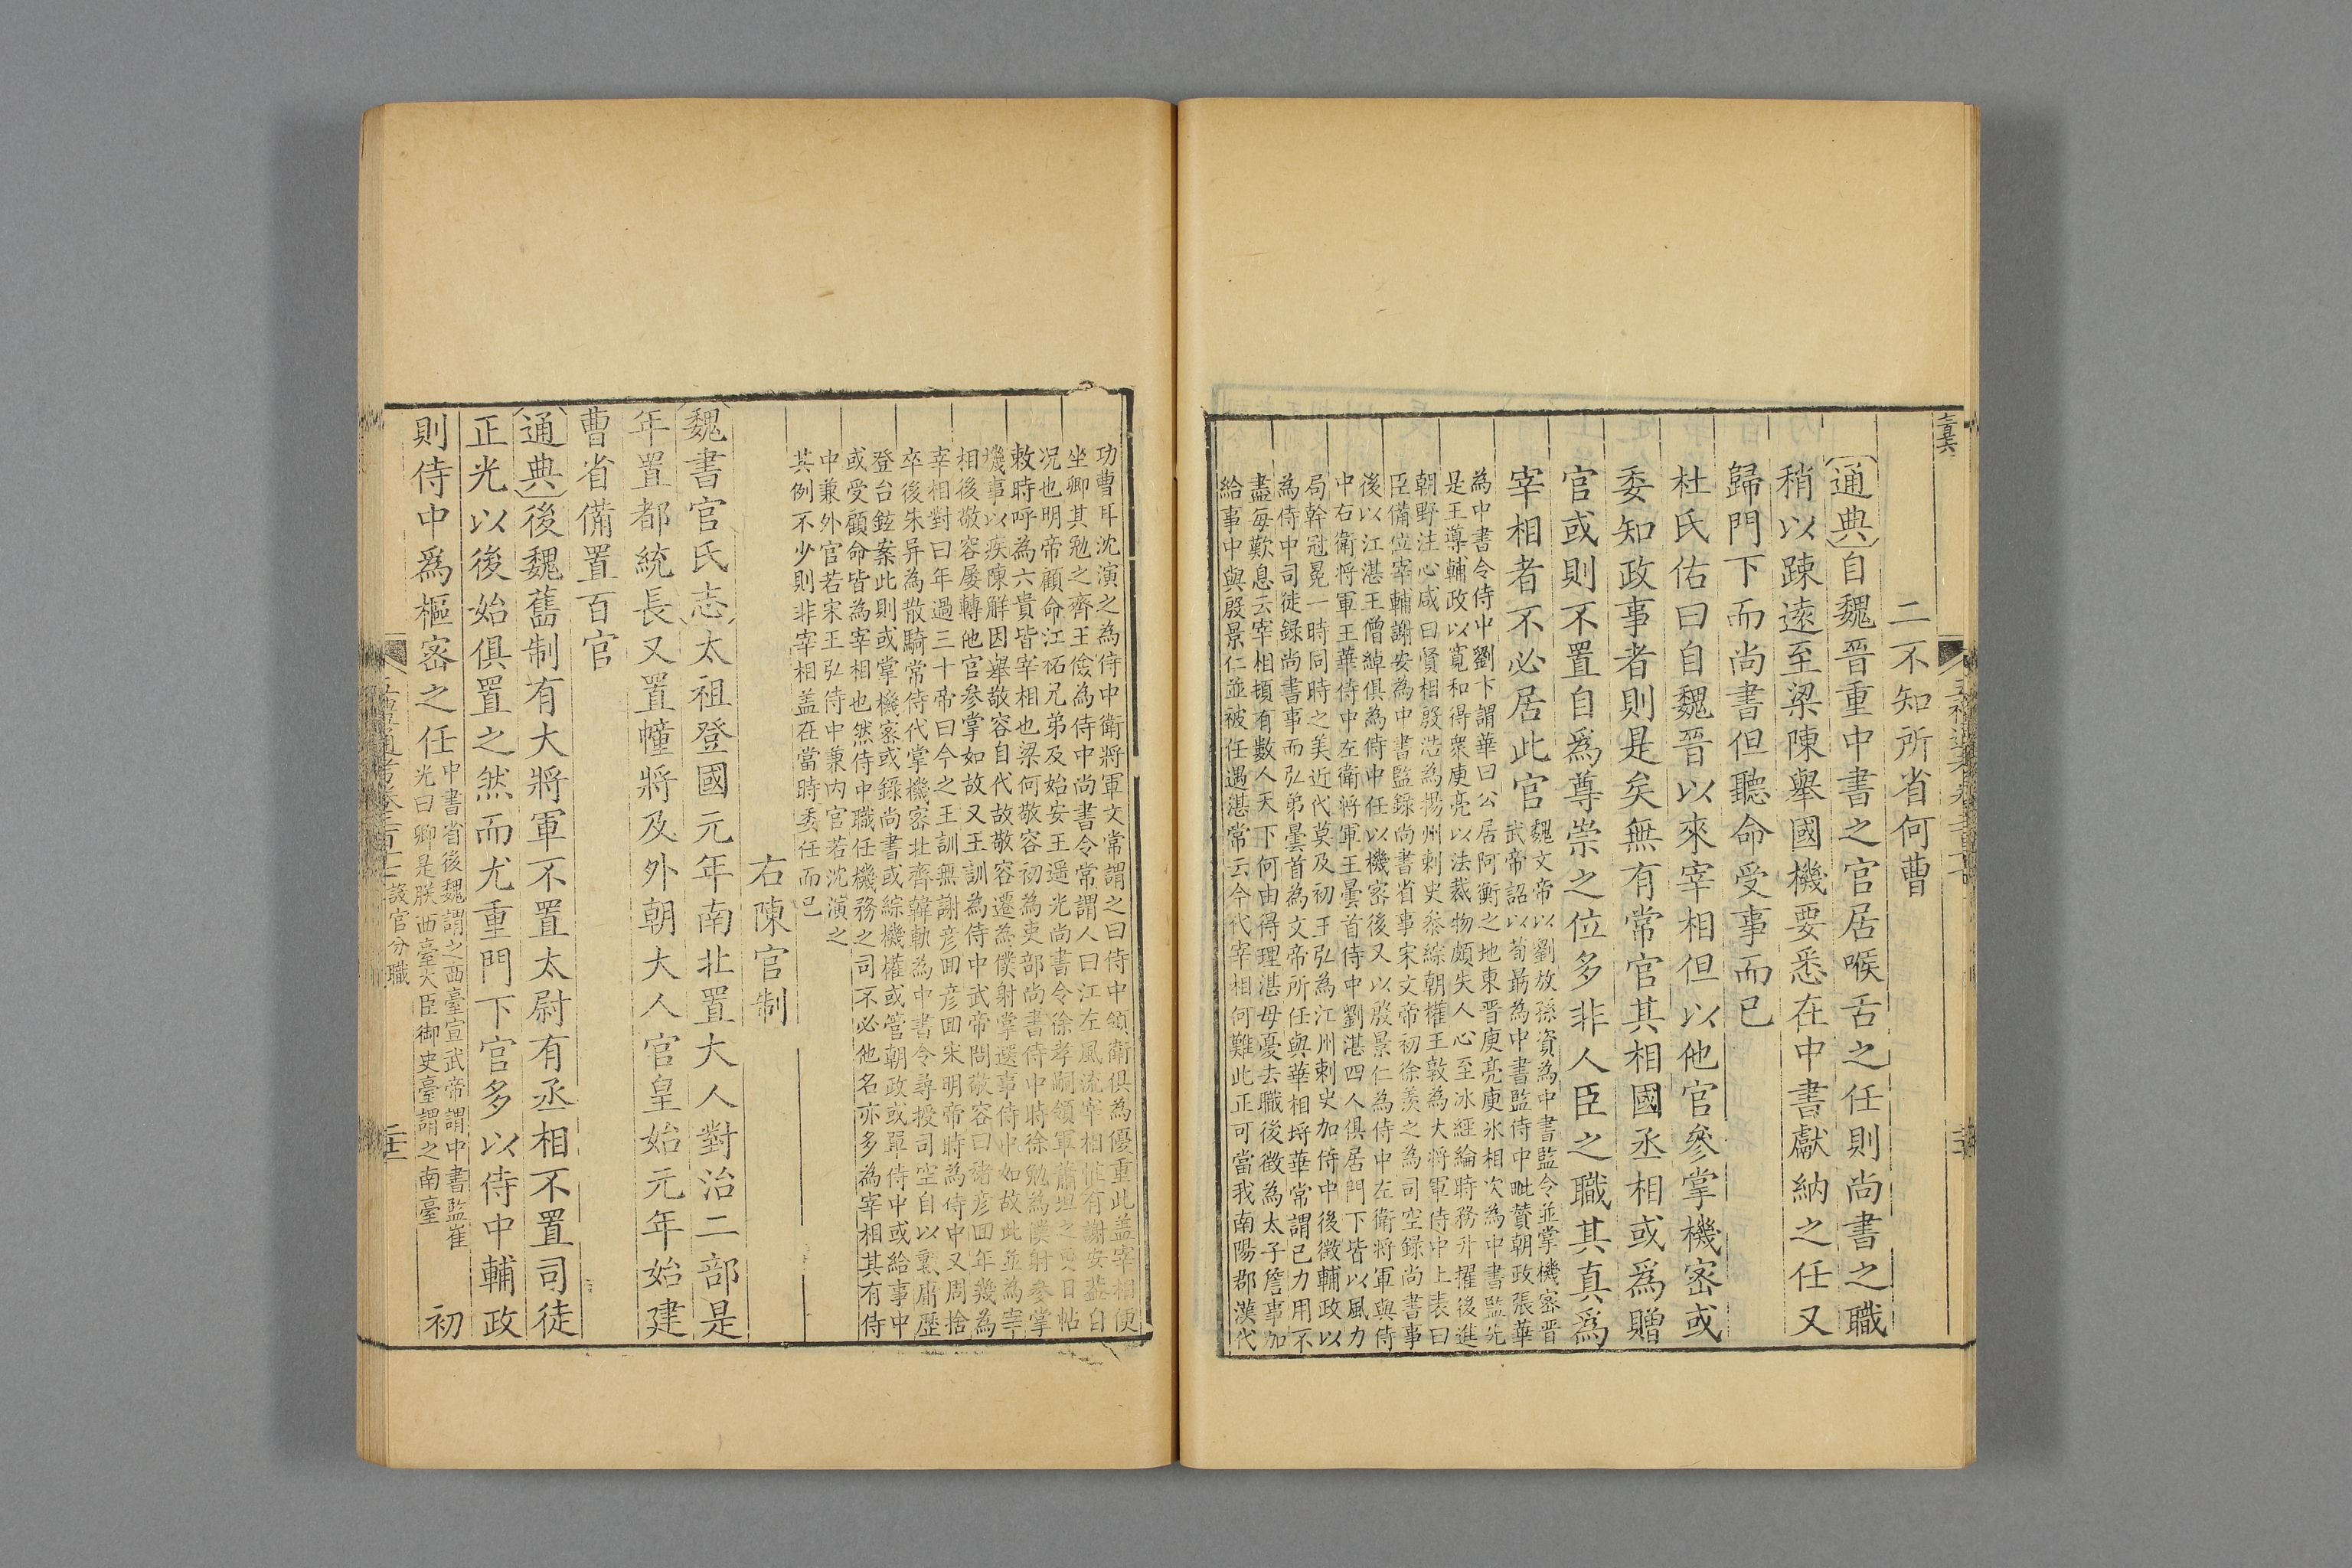 二不知所省何曹
通典自魏晉重中書之官居喉舌之任則尚書之職
稍以踈遠至梁陳舉國機要悉在中書獻納之任又
歸門下而尚書但聽命受事而已
杜氏佑曰自魏晉以來宰相但以他官參掌機密或
委知政事者則是矣無有常官其相國丞相或爲贈
官或則不置自爲尊崇之位多非人臣之職其真爲
宰相者不必居此官
魏文帝以劉放孫資為中書監令並掌機密晉
武帝詔以荀勗為中書監侍中毗贊朝政張華
為中書令侍中劉卞謂華曰公居阿衡之地東晉庾亮庾氷相次為中書監先
是王導輔政以寬和得衆庾亮以法裁物頗失人心至冰經綸時務升擢後進
朝野注心咸曰賢相殷浩為揚州刺史叅綜朝權王敦為大将軍侍中上表曰
臣備位宰輔謝安為中書監録尚書省事宋文帝初徐羡之為司空録尚書事
後以江湛王僧綽俱為侍中任以機密後又以殷景仁為侍中左衛将軍與侍
中右衛将軍王華侍中左衛将軍王曇首侍中劉湛四人俱居門下皆以風力
局幹冠冕一時同時之美近代莫及初王弘為江州刺史加侍中後徵輔政以
為侍中司徒録尚書事而弘弟曇首為文帝所任與華相埒華常謂已力用不
盡每歎息云宰相頓有數人天下何由得理湛母憂去職後徵為太子詹事加
給事中與殷景仁並被任遇湛常云今代宰相何難此正可當我南陽郡漢代
功曹耳沈演之為侍中衛將軍文常謂之曰侍中領衛俱為優重此盖宰相便
坐卿其勉之齊王儉為侍中尚書令常謂人曰江左風流宰相惟有謝安盖自
况也明帝顧命江祏兄弟及始安王遥光尚書令徐孝嗣領軍蕭坦之更日帖
敕時呼為六貴皆宰相也梁何敬容初為吏部尚書侍中時徐勉為僕射參掌
機事以疾陳解因舉敬容自代故敬容遷為僕射掌選事侍中如故此並為宰
相後敬容屡轉他官參掌如故又王訓為侍中武帝問敬容曰禇彥囬年幾為
宰相對曰年過三十帝曰今之王訓無謝彥囬彥囬宋明帝時為侍中又周捨
卒後朱异為散騎常侍代掌機密北齊韓軌為中書令尋授司空自以勲庸歴
登台鉉案此則或掌機密或錄尚書或綜機權或管朝政或單侍中或給事中
或受顧命皆為宰相也然侍中職任機務之司不必他名亦多為宰相其有侍
中兼外官若宋王弘侍中兼内官若沈演之
其例不少則非宰相盖在當時委任而已
右陳官制
魏書官氏志太祖登國元年南北置大人對治二部是
年置都統長又置幢將及外朝大人官皇始元年始建
曹省備置百官
通典後魏舊制有大將軍不置太尉有丞相不置司徒
正光以後始俱置之然而尤重門下官多以侍中輔政
則侍中爲樞密之任
中書省後魏謂之西臺宣武帝謂中書監崔
光曰卿是朕西臺大臣御史臺謂之南臺
初
五禮通考卷二百十七
設官分職